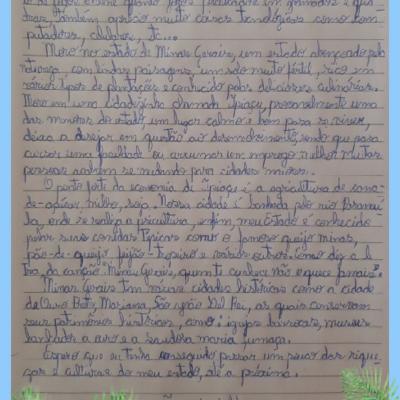 de jogos online quando jogos praticados em gramados e qua-
dras, também aprecio muito coisas tecnológicas como com
putadores, celulares, tc...
Moro no estado de Minas Gerais, um estado abençoado pela
natureza com lindas paisagens, um solo muito fértil, rico em
vários tipos de plantações e conhecido pelas delícias culinárias.
Moro em uma cidadezinha chamada Ipiaçu, provavelmente uma
das menores do estado, um lugar calmo e bom para se viver,
deixa a desejar em questão ao desenvolvimento, sendo que para
cursar uma faculdade ou arrumar um emprego melhor muitas
pessoas acabam se mudando para cidades maiores.
O ponto forte da economia de Ipiaçu é a agricultura de cana-
de-açúcar, milho, soja. Nossa cidade é banhada pelo rio Paranaí
ba, onde se realiza a piscicultura, enfim, meu Estado é conhecido
pelas suas comidas típicas como o famoso queijo minas,
pão-de-queijo, feijão-tropeiro e vários outros. Como diz a le
tra da canção: Minas Gerais, quem te conhece não esquece jamais".
Minas Gerais tem várias cidades históricas como a cidade
de Ouro Preto, Mariana, São João Del Rei, as quais conservam
seus patrimônios históricos, como: igrejas barrocas, museus
banhados a ouro e a saudosa maria fumaça.
Espero que eu tenha conseguido passar um pouco das rique
zas e culturas do meu estado, até a próxima.